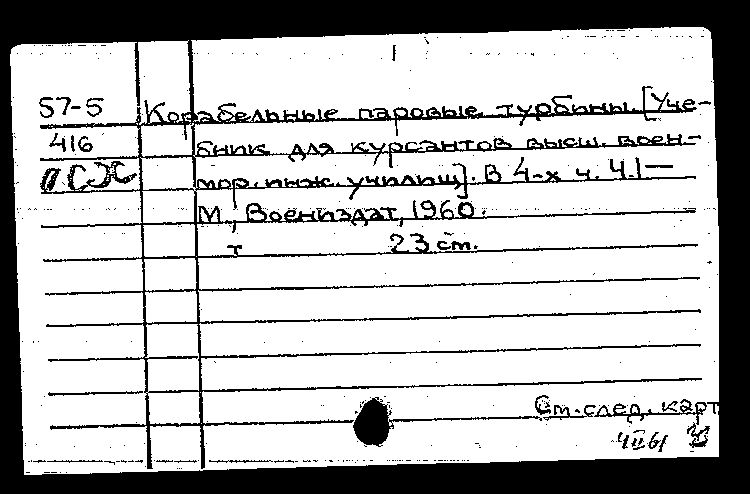 57-5 Корабельные паровые турбины. [Уче-
416 бник для курсантов высш. воен-
мор. инж. училищ]. В 4-х ч. Ч.1—
М., Воениздат, 1960.
т 23 см.
См. след. карт
4 II 61